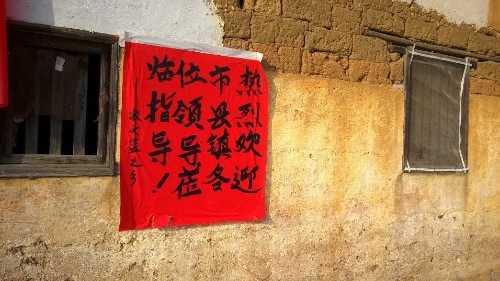 热烈欢迎
市县镇各
位领导莅
临指导！
之乡